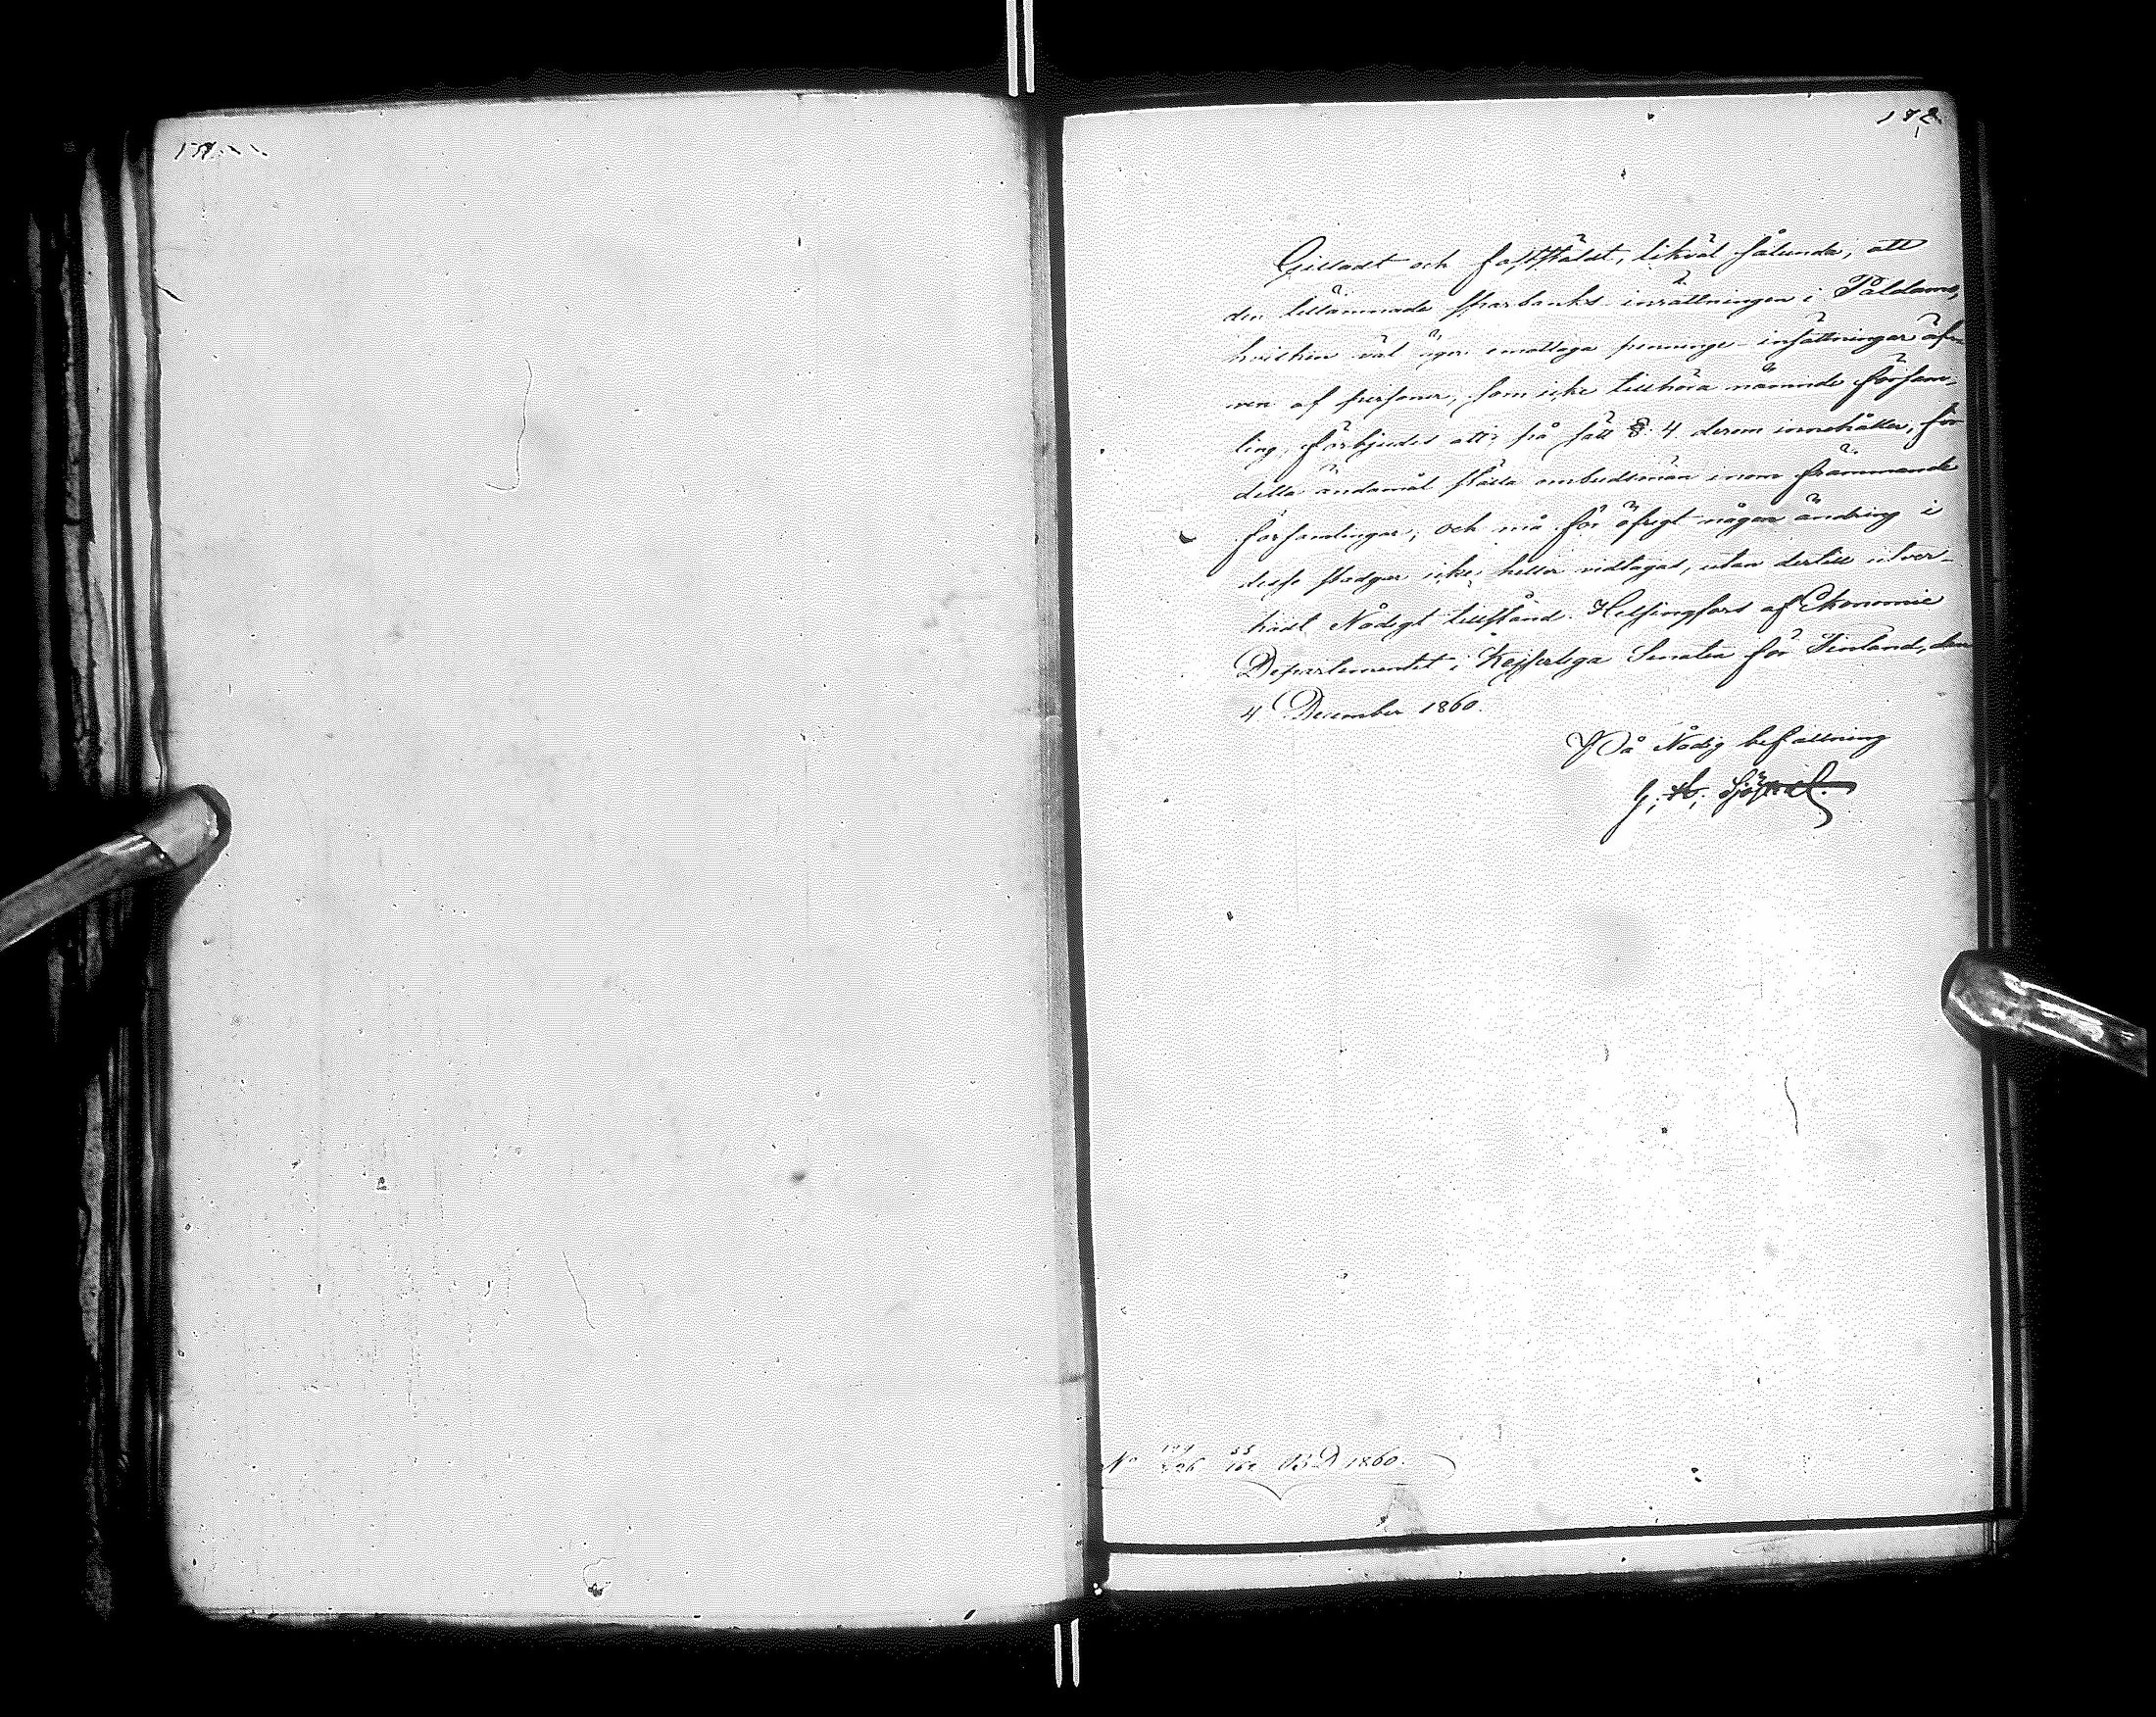 178.
Gilladt och fastställdt, likväl sålunda, att
den tillämnade sparbanks inrättningen i Paldamo,
hvilken väl äger emottaga penninge-insättningar äf-
ven af personer, som icke tillhöra nämnde försam-
ling, förbjudes att, på sätt §: 4 derom innehåller, för
detta ändamål ställa ombudsmän inom främmande
församlingar; och må för öfrigt någon ändring i
desse stadgar icke heller vidtagas, utan dertill utver-
kadt Nådigt tillstånd. Helsingfors af Ekonomie
Departementet i Kejserliga Senaten för Finland, den
4 December 1860.
På Nådig befallning
No B D 1860.